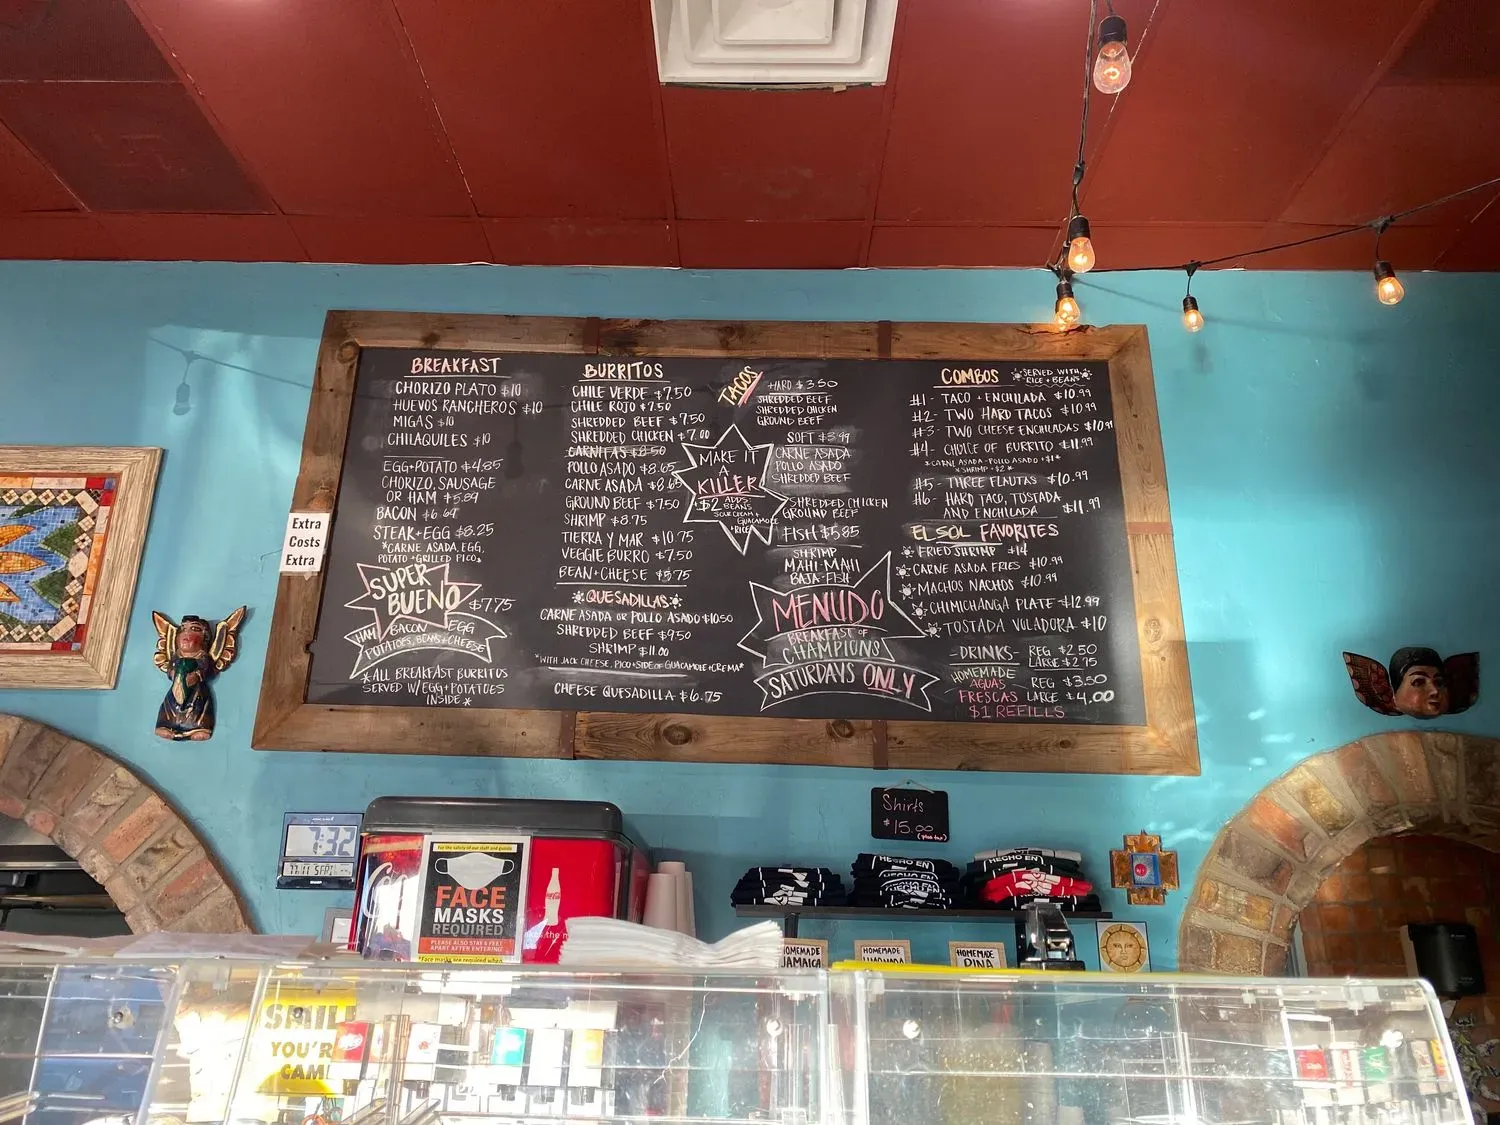 BREAKFAST
CHORIZO PLATO $10
HUEVOS RANCHEROS $10
MIGAS $10
CHILAQUILES $10
EGG+POTATO $4.85
CHORIZO, SAUSAGE
OR HAM $5.89
BACON $6.69
STEAK+EGG $8.25
*CARNE ASADA, EGG,
POTATO+GRILLED PICO*
SUPER
BUENO $7.75
HAM BACON EGG
POTATOES, BEANS+CHEESE
*ALL BREAKFAST BURRITOS
SERVED W/EGG+POTATOES
INSIDE*
BURRITOS
CHILE VERDE $7.50
CHILE ROJO $7.50
SHREDDED BEEF $7.50
SHREDDED CHICKEN $7.00
CARNITAS $8.50
POLLO ASADO $8.65
CARNE ASADA $8.65
GROUND BEEF $7.50
SHRIMP $8.75
TIERRA Y MAR $10.75
VEGGIE BURRO $7.50
BEAN+CHEESE $5.75
QUESADILLAS
CARNE ASADA OR POLLO ASADO $10.50
SHREDDED BEEF $9.50
SHRIMP $11.00
*WITH JACK CHEESE, PICO+SIDE OF GUACAMOLE+CREMA*
CHEESE QUESADILLA $6.75
MAKE IT
A
KILLER
$2 ADDS:
BEANS
SOUR CREAM+
GUACAMOLE
+RICE
TACOS
HARD $3.50
SHREDDED BEEF
SHREDDED CHICKEN
GROUND BEEF
SOFT $3.99
CARNE ASADA
POLLO ASADO
SHREDDED BEEF
SHREDDED CHICKEN
GROUND BEEF
FISH $5.85
SHRIMP
MAHI-MAHI
BAJA-FISH
MENUDO
BREAKFAST OF
CHAMPIONS
SATURDAYS ONLY
COMBOS
SERVED WITH
RICE + BEANS
#1- TACO + ENCHILADA $10.99
#2- TWO HARD TACOS $10.99
#3- TWO CHEESE ENCHILADAS $10.99
#4- CHOICE OF BURRITO $11.99
*CARNE ASADA-POLLO ASADO +$1*
*SHRIMP+$2*
#5- THREE FLAUTAS $10.99
#6- HARD TACO, TOSTADA
AND ENCHILADA $11.99
EL SOL FAVORITES
FRIED SHRIMP $14
CARNE ASADA FRIES $10.99
MACHOS NACHOS $10.99
CHIMICHANGA PLATE $12.99
TOSTADA VOLADORA $10
-DRINKS- REG $2.50
LARGE $2.75
HOMEMADE
AGUAS
FRESCAS
REG $3.50
LARGE $4.00
$1 REFILLS
Extra
Costs
Extra
Shirts
$15.00
(plus tax)
7:32
For the safety of our staff and guests
FACE
MASKS
REQUIRED
PLEASE ALSO STAY 6 FEET
APART AFTER ENTERING
*Face masks are required when
Coca-Cola
HECHO EN
HECHO EN
HECHO EN
HECHO EN
HOMEMADE
JAMAICA
HOMEMADE
HOMEMADE
PINA
SMIL
YOU'R
CAM